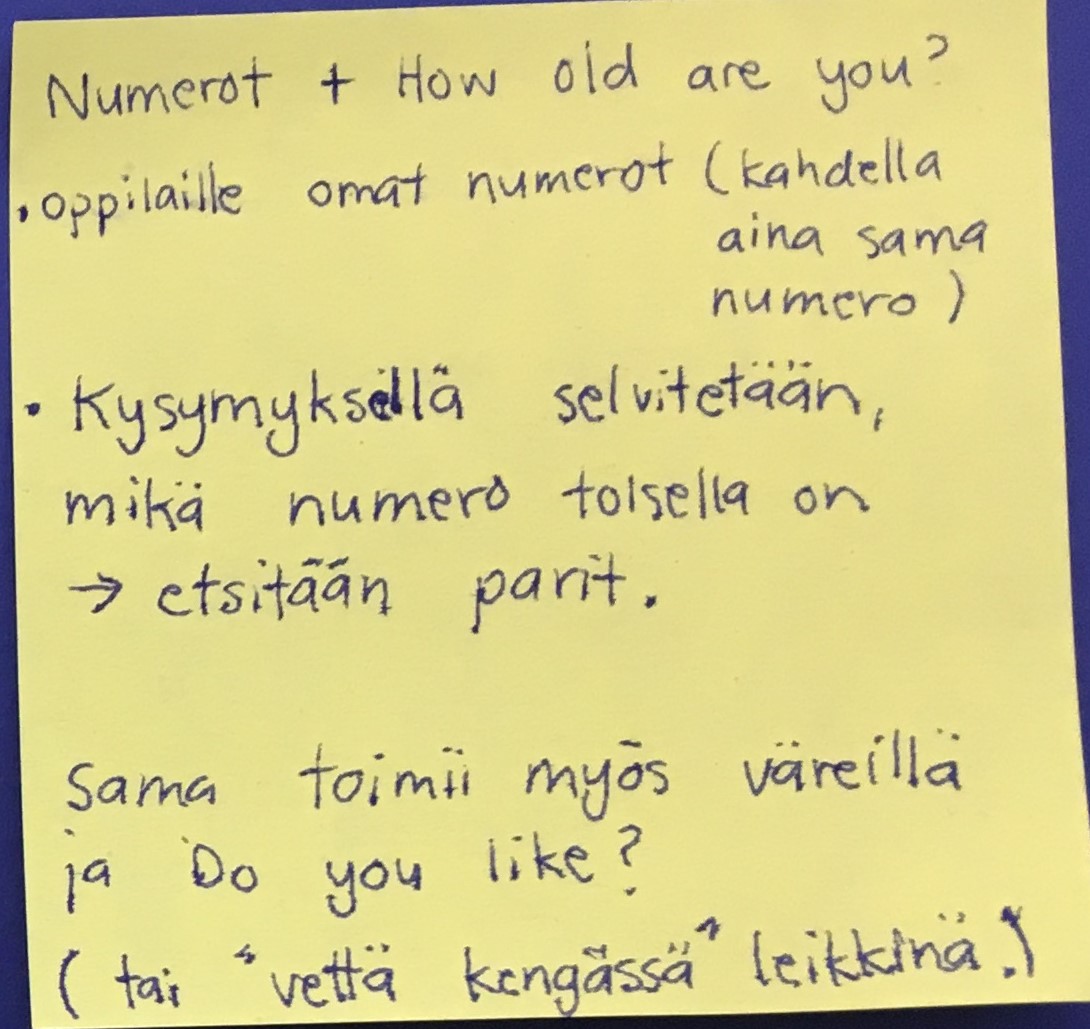 Numerot + How old are you?
• oppilaille omat numerot (kahdella
aina sama
numero)
• Kysymyksellä selvitetään,
mikä numero toisella on
→ etsitään parit.
Sama toimii myös väreillä
ja Do you like?
(tai "vettä kengässä" leikkinä.)